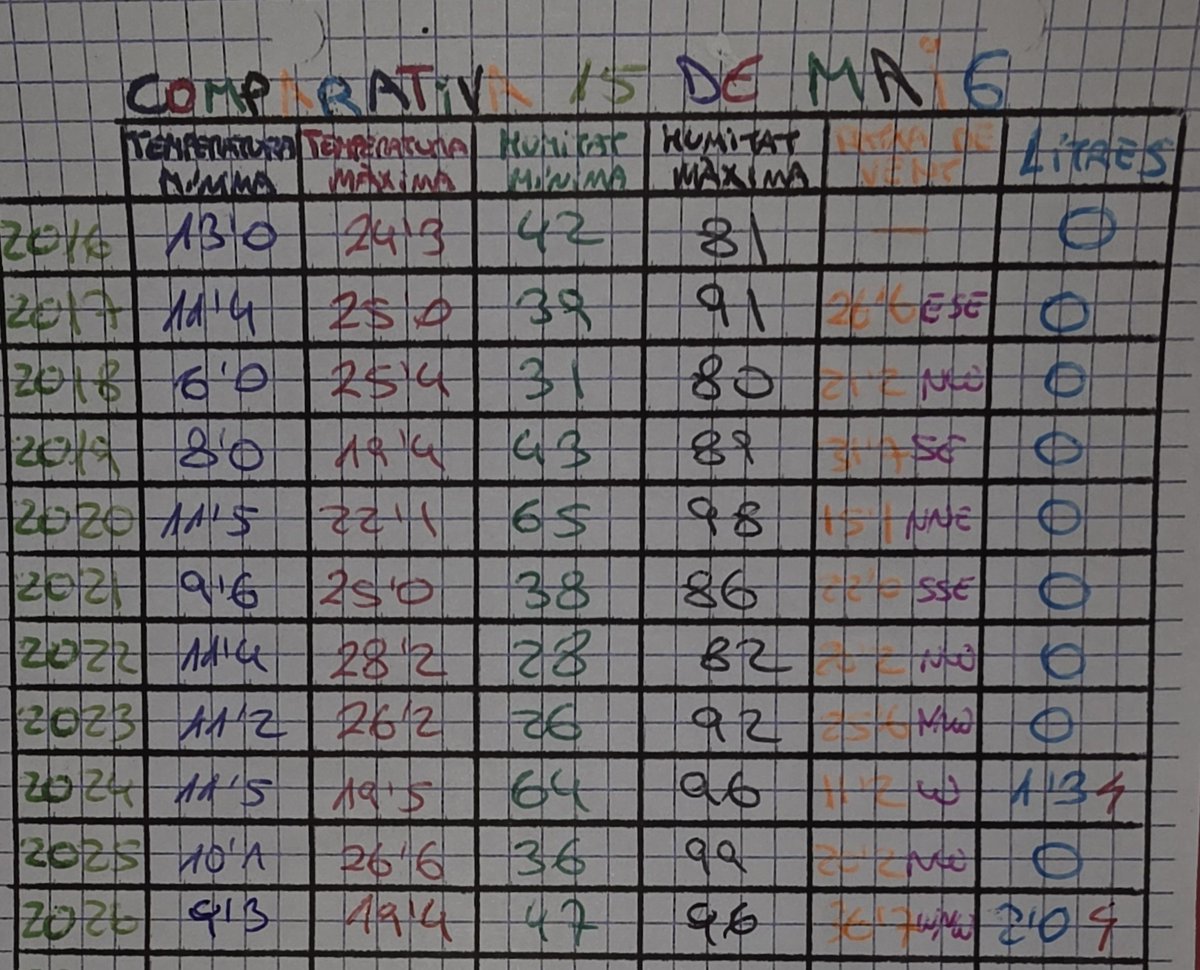 COMPARATIVA 15 DE MAiG
TEMPERATURA MíNIMA TEMPERATURA MÀXIMA HUMITAT MíNIMA HUMITAT MÀXIMA RATXA DE VENT LITRES
2016 13'0 24'3 42 81 — 0
2017 11'4 25'0 39 91 26'6 ESE 0
2018 6'0 25'4 31 80 21'2 NW 0
2019 8'0 19'4 43 89 31'7 SE 0
2020 11'5 22'1 65 98 15'1 NNE 0
2021 9'6 25'0 38 86 22'0 SSE 0
2022 11'4 28'2 28 82 NW 0
2023 11'2 26'2 26 92 25'6 NW 0
2024 11'5 19'5 64 96 11'2 W 1'3
2025 10'1 26'6 36 99 20'2 NW 0
2026 9'3 19'4 47 96 36'7 WNW 2'0